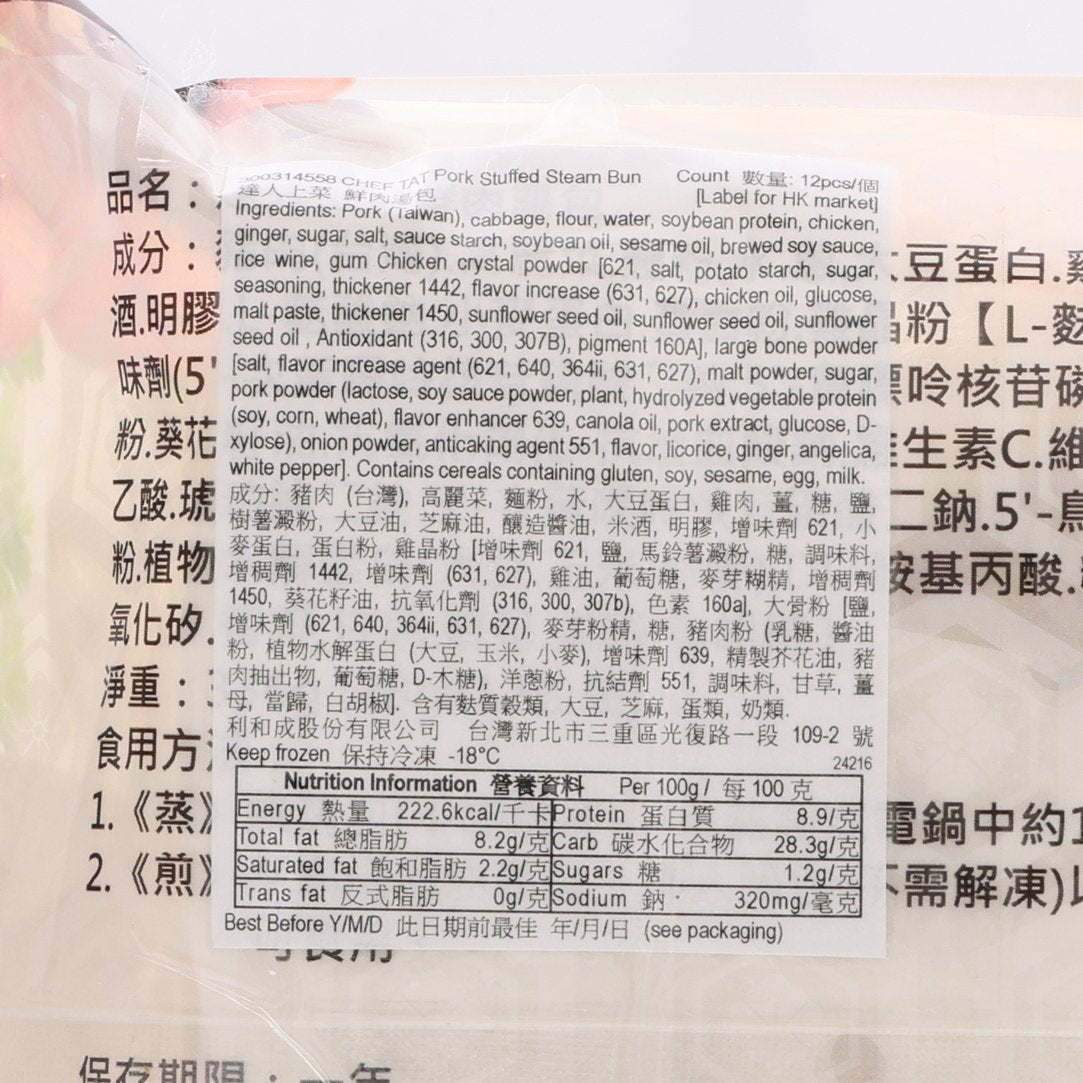 300314558 CHEF TAT Pork Stuffed Steam Bun Count 數量: 12pcs/個
達人上菜 鮮肉湯包 [Label for HK market]
Ingredients: Pork (Taiwan), cabbage, flour, water, soybean protein, chicken,
ginger, sugar, salt, sauce starch, soybean oil, sesame oil, brewed soy sauce,
rice wine, gum Chicken crystal powder [621, salt, potato starch, sugar,
seasoning, thickener 1442, flavor increase (631, 627), chicken oil, glucose,
malt paste, thickener 1450, sunflower seed oil, sunflower seed oil, sunflower
seed oil , Antioxidant (316, 300, 307B), pigment 160A], large bone powder
[salt, flavor increase agent (621, 640, 364ii, 631, 627), malt powder, sugar,
pork powder (lactose, soy sauce powder, plant, hydrolyzed vegetable protein
(soy, corn, wheat), flavor enhancer 639, canola oil, pork extract, glucose, D-
xylose), onion powder, anticaking agent 551, flavor, licorice, ginger, angelica,
white pepper]. Contains cereals containing gluten, soy, sesame, egg, milk.
成分: 豬肉 (台灣), 高麗菜, 麵粉, 水, 大豆蛋白, 雞肉, 薑, 糖, 鹽,
樹薯澱粉, 大豆油, 芝麻油, 釀造醬油, 米酒, 明膠, 增味劑 621, 小
麥蛋白, 蛋白粉, 雞晶粉 [增味劑 621, 鹽, 馬鈴薯澱粉, 糖, 調味料,
增稠劑 1442, 增味劑 (631, 627), 雞油, 葡萄糖, 麥芽糊精, 增稠劑
1450, 葵花籽油, 抗氧化劑 (316, 300, 307b), 色素 160a], 大骨粉 [鹽,
增味劑 (621, 640, 364ii, 631, 627), 麥芽粉精, 糖, 豬肉粉 (乳糖, 醬油
粉, 植物水解蛋白 (大豆, 玉米, 小麥), 增味劑 639, 精製芥花油, 豬
肉抽出物, 葡萄糖, D-木糖), 洋蔥粉, 抗結劑 551, 調味料, 甘草, 薑
母, 當歸, 白胡椒]. 含有麩質穀類, 大豆, 芝麻, 蛋類, 奶類.
利和成股份有限公司 台灣新北市三重區光復路一段 109-2 號
Keep frozen 保持冷凍 -18°C 24216
Nutrition Information 營養資料 Per 100g / 每 100 克
Energy 熱量 222.6kcal/千卡 Protein 蛋白質 8.9/克
Total fat 總脂肪 8.2g/克 Carb 碳水化合物 28.3g/克
Saturated fat 飽和脂肪 2.2g/克 Sugars 糖 1.2g/克
Trans fat 反式脂肪 0g/克 Sodium 鈉 320mg/毫克
Best Before Y/M/D 此日期前最佳 年/月/日 (see packaging)
品名：
成分： 豆蛋白.
酒.明膠 粉【L-麩
味劑(5' 呤核苷磷
粉.葵花 生素C.維
乙酸.琥 二鈉.5'-鳥
粉.植物 胺基丙酸.
氧化矽.
淨重：
食用方
1.《蒸》 電鍋中約1
2.《煎》 需解凍)以
可食用
保存期限：一年